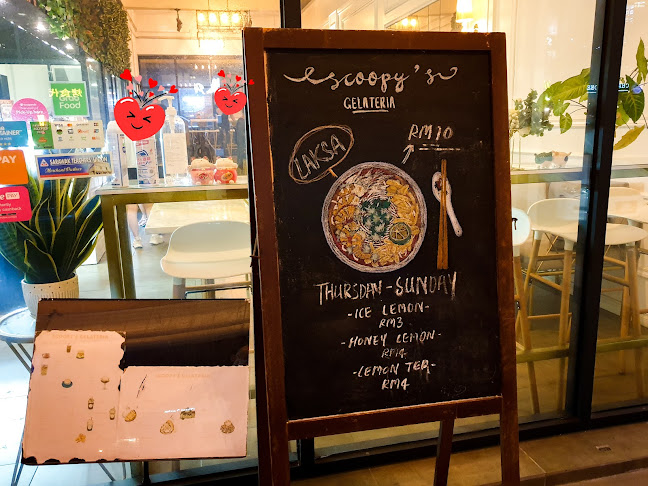 Scoopy's
GELATERIA
LAKSA
RM10
THURSDAY - SUNDAY
- ICE LEMON -
RM3
- HONEY LEMON -
RM4
- LEMON TEA -
RM4
Food
SARAWAK TEACHERS
PAY